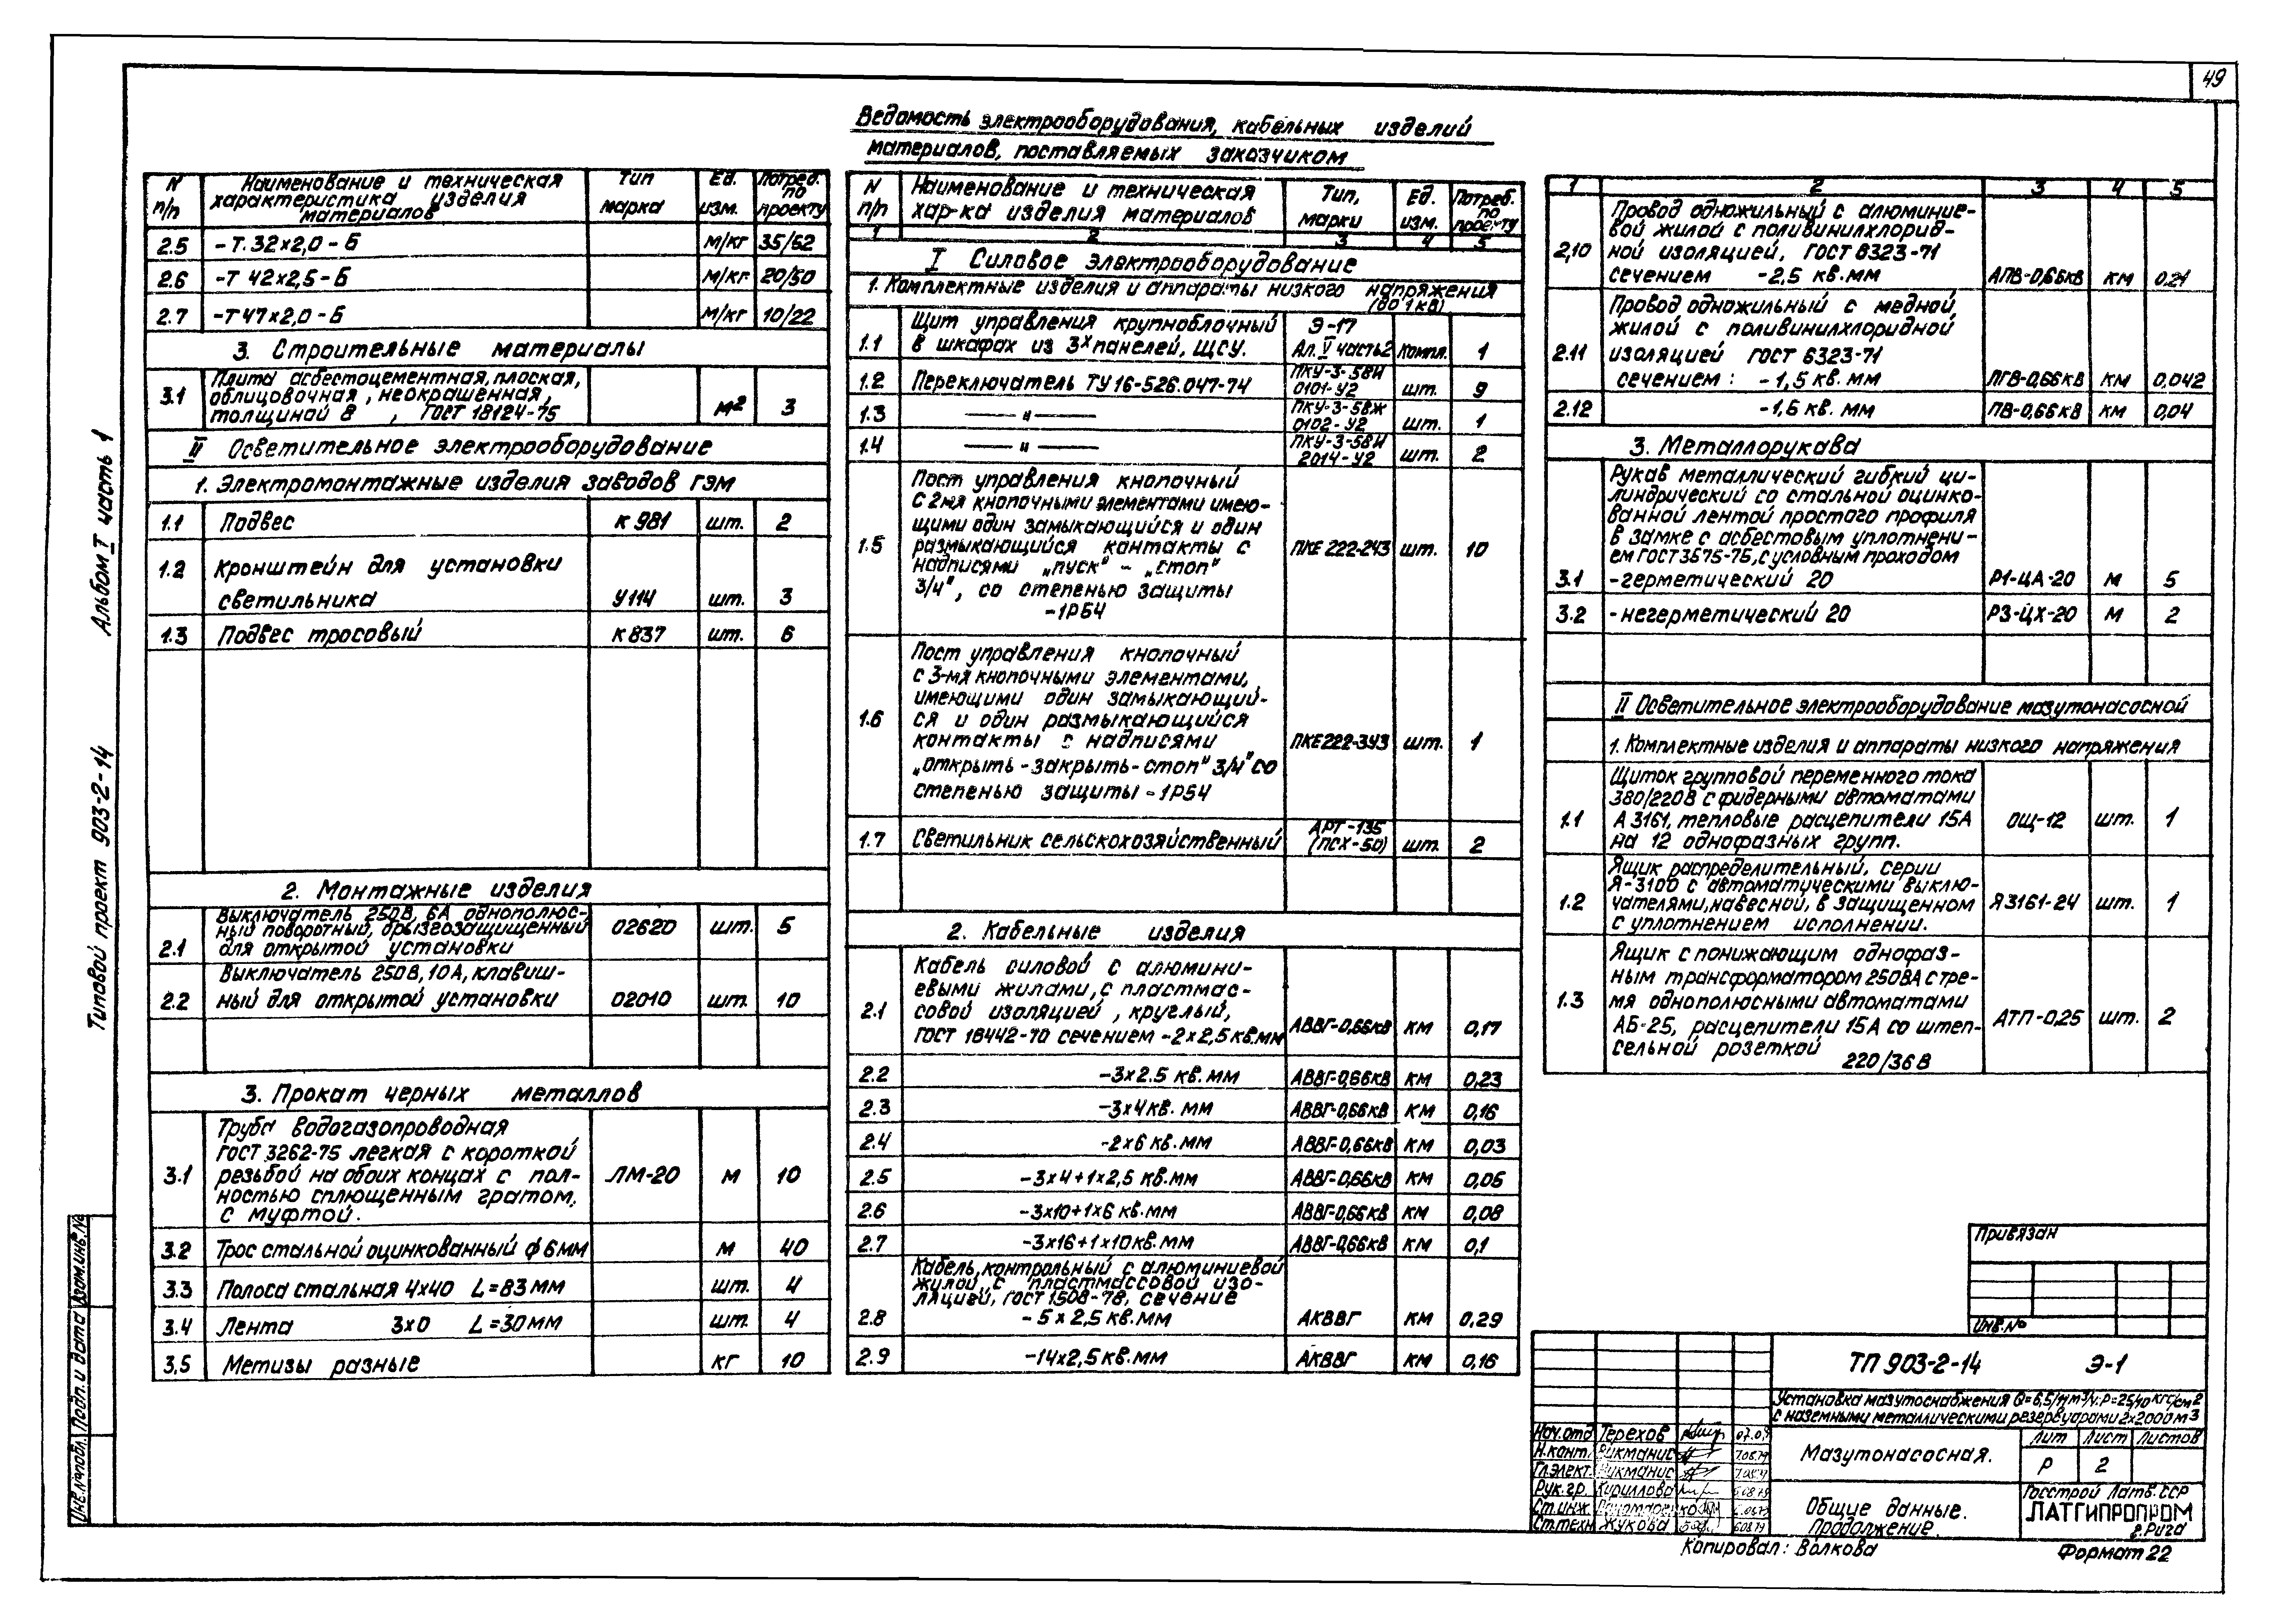 49
Ведомость электрооборудования, кабельных изделий
материалов, поставляемых заказчиком
N п/п Наименование и техническая характеристика изделия материалов Тип марка Ед. изм. Потреб. по проекту
2.5 -Т. 32х2,0-Б м/кг 35/52
2.6 -Т 42х2,5-Б м/кг 20/50
2.7 -Т47х2,0-Б м/кг 10/22
3. Строительные материалы
Плита асбестоцементная, плоская,
облицовочная, неокрашенная,
3.1 толщиной 8 , ГОСТ 18124-75 м² 3
II Осветительное электрооборудование
1. Электромонтажные изделия заводов ГЭМ
1.1 Подвес К 981 шт. 2
1.2 Кронштейн для установки
светильника У114 шт. 3
1.3 Подвес тросовый К837 шт. 6
2. Монтажные изделия
Выключатель 250В, 6А однополюс-
ный поворотный, брызгозащищенный 02620 шт. 5
2.1 для открытой установки
Выключатель 250В, 10А, клавиш-
2.2 ный для открытой установки 02010 шт. 10
3. Прокат черных металлов
Труба водогазопроводная
ГОСТ 3262-75 легкая с короткой
3.1 резьбой на обоих концах с пол- ЛМ-20 м 10
ностью сплющенным гратом,
с муфтой.
3.2 Трос стальной оцинкованный ф6мм м 40
3.3 Полоса стальная 4х40 L=83мм шт. 4
3.4 Лента 3х0 L=30мм шт. 4
3.5 Метизы разные кг 10
N п/п Наименование и техническая хар-ка изделия материалов Тип, марки Ед. изм. Потреб. по проекту
1 2 3 4 5
I Силовое электрооборудование
1. Комплектные изделия и аппараты низкого напряжения
(до 1кв)
Щит управления крупноблочный Э-17
1.1 в шкафах из 3х панелей, ЩСУ. Ал. V часть2 Компл. 1
1.2 Переключатель ТУ16-526.047-74 ПКУ-3-58И 0101-У2 шт. 9
1.3 —— " —— ПКУ-3-58Ж 0102-У2 шт. 1
1.4 —— " —— ПКУ-3-58И 2014-У2 шт. 2
Пост управления кнопочный
с 2мя кнопочными элементами имею-
щими один замыкающийся и один
1.5 размыкающийся контакты с ПКЕ 222-2У3 шт. 10
надписями „пуск" - „стоп"
3/4", со степенью защиты
-1Р54
Пост управления кнопочный
с 3-мя кнопочными элементами,
имеющими один замыкающий-
1.6 ся и один размыкающийся
контакты с надписями ПКЕ222-3У3 шт. 1
„открыть-закрыть-стоп" 3/4" со
степенью защиты-1Р54
1.7 Светильник сельскохозяйственный АРТ-135 (ПСХ-50) шт. 2
2. Кабельные изделия
Кабель силовой с алюмини-
евыми жилами, с пластмас-
2.1 совой изоляцией, круглый, АВВГ-0,66кв км 0,17
ГОСТ 16442-70 сечением -2х2,5 кв.мм
2.2 -3х2.5 кв.мм АВВГ-0,66кв км 0,23
2.3 -3х4кв. мм АВВГ-0,66кв км 0,16
2.4 -2х6 кв.мм АВВГ-0,66кв км 0,03
2.5 -3х4+1х2,5 кв.мм АВВГ-0,66кв км 0,05
2.6 -3х10+1х6 кв.мм АВВГ-0,66кв км 0,08
2.7 -3х16+1х10кв.мм АВВГ-0,66кв км 0,1
Кабель, контрольный с алюминиевой
жилой, с пластмассовой изо-
ляцией, ГОСТ 1508-78, сечение
2.8 -5х2,5 кв.мм АКВВГ км 0,29
2.9 -14х2,5 кв.мм АКВВГ км 0,16
1 2 3 4 5
Провод одножильный с алюминие-
вой жилой с поливинилхлорид-
2,10 ной изоляцией, ГОСТ 6323-71
сечением -2,5 кв.мм АПВ-0,66кв км 0.21
Провод одножильный с медной,
жилой с поливинилхлоридной
2.11 изоляцией ГОСТ 6323-71
сечением: -1,5 кв. мм ПГВ-0,66кв км 0,042
2.12 -1,5 кв. мм ПВ-0,66кв км 0,04
3. Металлорукава
Рукав металлический гибкий ци-
линдрический со стальной оцинко-
ванной лентой простого профиля
в замке с асбестовым уплотнени-
ем ГОСТ3575-75, с условным проходом
3.1 -герметический 20 Р1-ЦА-20 м 5
3.2 -негерметический 20 Р3-ЦХ-20 м 2
II Осветительное электрооборудование мазутонасосной
1. Комплектные изделия и аппараты низкого напряжения
Щиток групповой переменного тока
380/220В с фидерными автоматами
1.1 А 3161, тепловые расцепители 15А ОЩ-12 шт. 1
на 12 однофазных групп.
Ящик распределительный, серии
Я-3100 с автоматическими выклю-
1.2 чателями, навесной, в защищенном Я3161-24 шт. 1
с уплотнением исполнении.
Ящик с понижающим однофаз-
ным трансформатором 250ВА с тре-
1.3 мя однополюсными автоматами
АБ-25, расцепители 15А со штеп- АТП-0,25 шт. 2
сельной розеткой
220/36В
Типовой проект 903-2-14 Альбом I часть 1
Инв.№подл. Подп. и дата Взам.инв.№
Привязан
Инв.№
ТП 903-2-14 Э-1
Установка мазутоснабжения Q=6,5/11м³/ч; р=25/40кгс/см2
с наземными металлическими резервуарами 2х2000м3
Нач.отд Терехов 07.0
Н.конт. Рикманис 7.08.79
Гл.элект. Рикманис
Рук.гр. Кириллова 6.08.79
Ст.инж.
Ст.техн Жукова 6.08.79
Мазутонасосная.
Лит Лист Листов
Р 2
Общие данные.
Продолжение.
Госстрой Латв.ССР
ЛАТГИПРОПРОМ
г.Рига
Копировал: Волкова Формат 22